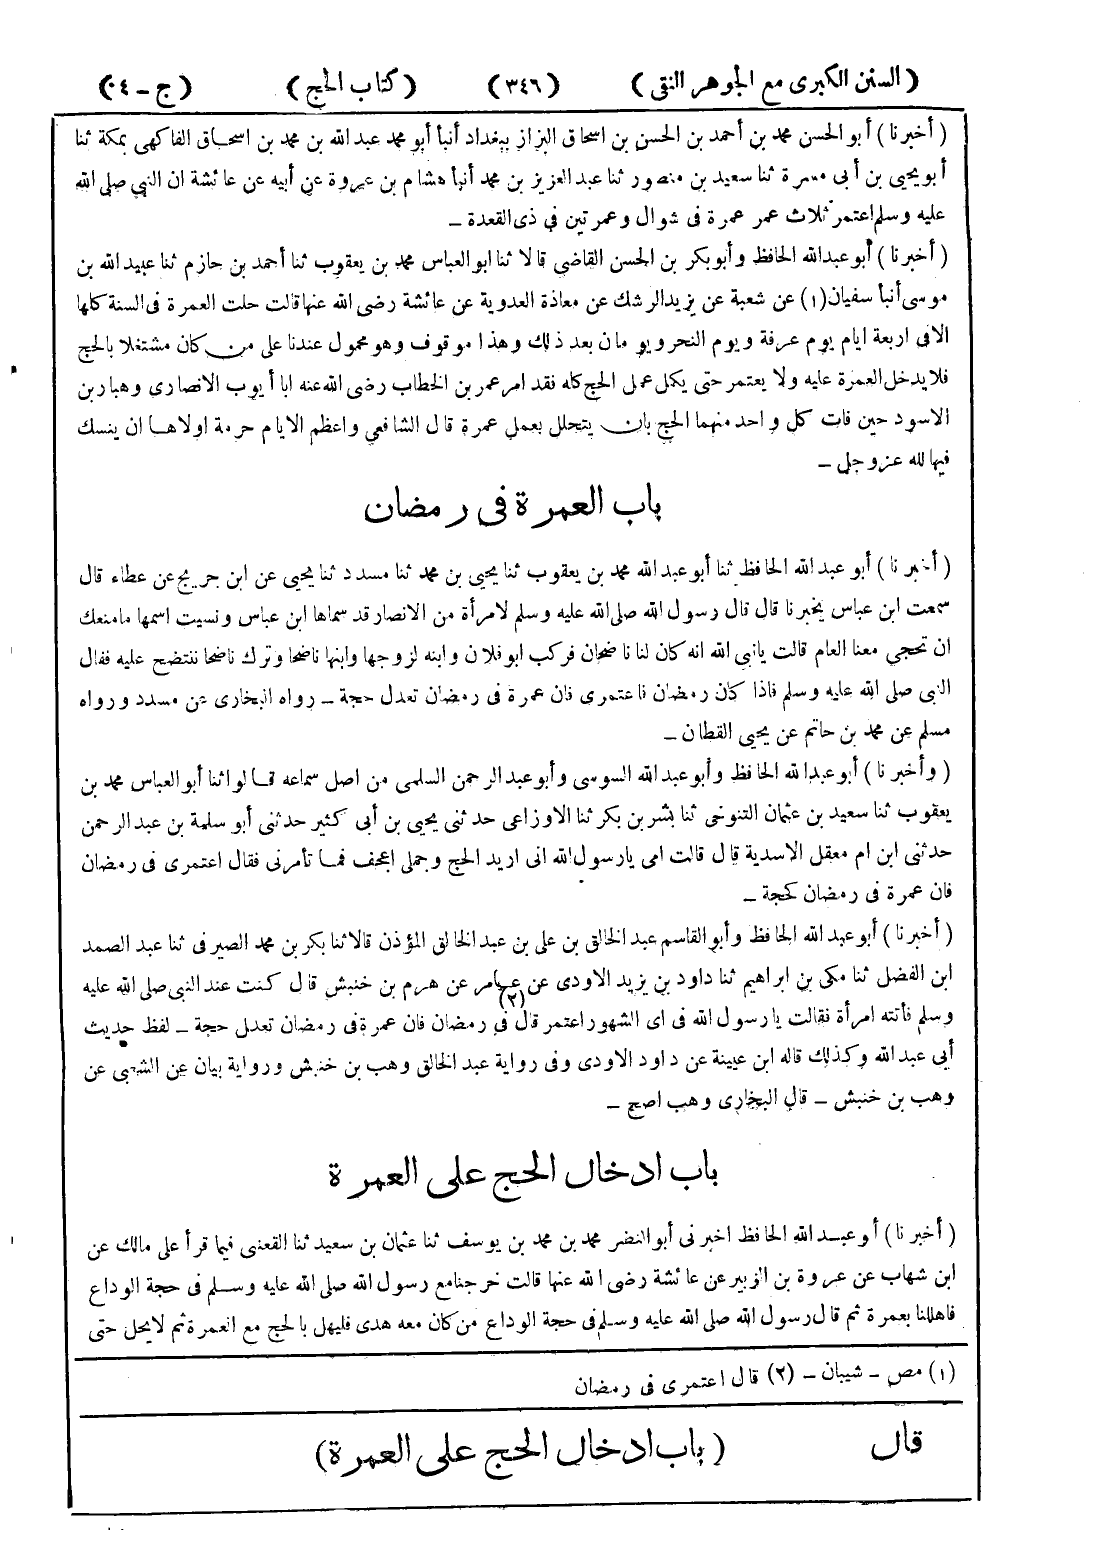 ( السنن الكبرى مع الجوهر النقى ) ( ٣٤٦ ) ( كتاب الحج ) ( ج - ٠٤ )
( أخبرنا ) أبو الحسن محمد بن أحمد بن الحسن بن اسحاق البزاز ببغداد أنبأ أبو محمد عبد الله بن محمد بن اسحاق الفاكهى بمكة ثنا
أبو يحيى بن أبى مسرة ثنا سعيد بن منصور ثنا عبد العزيز بن محمد أنبأ هشام بن عروة عن أبيه عن عائشة ان النبي صلى الله
عليه وسلم اعتمر ثلاث عمر عمرة فى شوال وعمرتين فى ذى القعدة -
( أخبرنا ) أبو عبد الله الحافظ وأبو بكر بن الحسن القاضى قالا ثنا ابو العباس محمد بن يعقوب ثنا أحمد بن حازم ثنا عبيد الله بن
موسى أنبأ سفيان (١) عن شعبة عن يزيد الرشك عن معاذة العدوية عن عائشة رضى الله عنها قالت حلت العمرة فى السنة كلها
الا فى اربعة ايام يوم عرفة ويوم النحر ويومان بعد ذلك وهذا موقوف وهو محمول عندنا على من كان مشتغلا بالحج
فلا يدخل العمرة عليه ولا يعتمر حتى يكمل عمل الحج كله فقد امر عمر بن الخطاب رضى الله عنه ابا أيوب الانصارى وهبار بن
الاسود حين فات كل واحد منهما الحج بان يتحلل بعمل عمرة قال الشافعي واعظم الايام حرمة اولاها ان ينسك
فيها لله عز وجل -
باب العمرة فى رمضان
( أخبرنا ) أبو عبد الله الحافظ ثنا أبو عبد الله محمد بن يعقوب ثنا يحيى بن محمد ثنا مسدد ثنا يحيى عن ابن جريج عن عطاء قال
سمعت ابن عباس يخبرنا قال قال رسول الله صلى الله عليه وسلم لامرأة من الانصار قد سماها ابن عباس ونسيت اسمها ما منعك
ان تحجي معنا العام قالت يا نبي الله انه كان لنا ناضحان فركب ابو فلان وابنه لزوجها وابنها ناضحا وترك ناضحا ننتضح عليه فقال
النبى صلى الله عليه وسلم فاذا كان رمضان فاعتمرى فان عمرة فى رمضان تعدل حجة - رواه البخارى عن مسدد ورواه
مسلم عن محمد بن حاتم عن يحيى القطان -
( وأخبرنا ) أبو عبد الله الحافظ وأبو عبد الله السوسى وأبو عبد الرحمن السلمى من اصل سماعه قالوا ثنا أبو العباس محمد بن
يعقوب ثنا سعيد بن عثمان التنوخى ثنا بشر بن بكر ثنا الاوزاعى حدثنى يحيى بن أبى كثير حدثنى أبو سلمة بن عبد الرحمن
حدثنى ابن ام معقل الاسدية قال قالت امى يا رسول الله انى اريد الحج وجملى اعجف فما تأمرنى فقال اعتمرى فى رمضان
فان عمرة فى رمضان كحجة -
( أخبرنا ) أبو عبد الله الحافظ وأبو القاسم عبد الخالق بن على بن عبد الخالق المؤذن قالا ثنا بكر بن محمد الصيرفى ثنا عبد الصمد
ابن الفضل ثنا مكى بن ابراهيم ثنا داود بن يزيد الاودى عن عامر عن هرم بن خنبش قال كنت عند النبى صلى الله عليه
وسلم فأتته امرأة فقالت يا رسول الله فى اى الشهور اعتمر قال (٢) فى رمضان فان عمرة فى رمضان تعدل حجة - لفظ حديث
أبى عبد الله وكذلك قاله ابن عيينة عن داود الاودى وفى رواية عبد الخالق وهب بن خنبش ورواية بيان عن الشعبى عن
وهب بن خنبش - قال البخارى وهب اصح -
باب ادخال الحج على العمرة
( أخبرنا ) أبو عبد الله الحافظ اخبرنى أبو النضر محمد بن محمد بن يوسف ثنا عثمان بن سعيد ثنا القعنبى فيما قرأ على مالك عن
ابن شهاب عن عروة بن الزبير عن عائشة رضى الله عنها قالت خرجنا مع رسول الله صلى الله عليه وسلم فى حجة الوداع
فاهللنا بعمرة ثم قال رسول الله صلى الله عليه وسلم فى حجة الوداع من كان معه هدى فليهل بالحج مع العمرة ثم لا يحل حتى
(١) مص - شيبان - (٢) قال اعتمرى فى رمضان
قال ( باب ادخال الحج على العمرة )